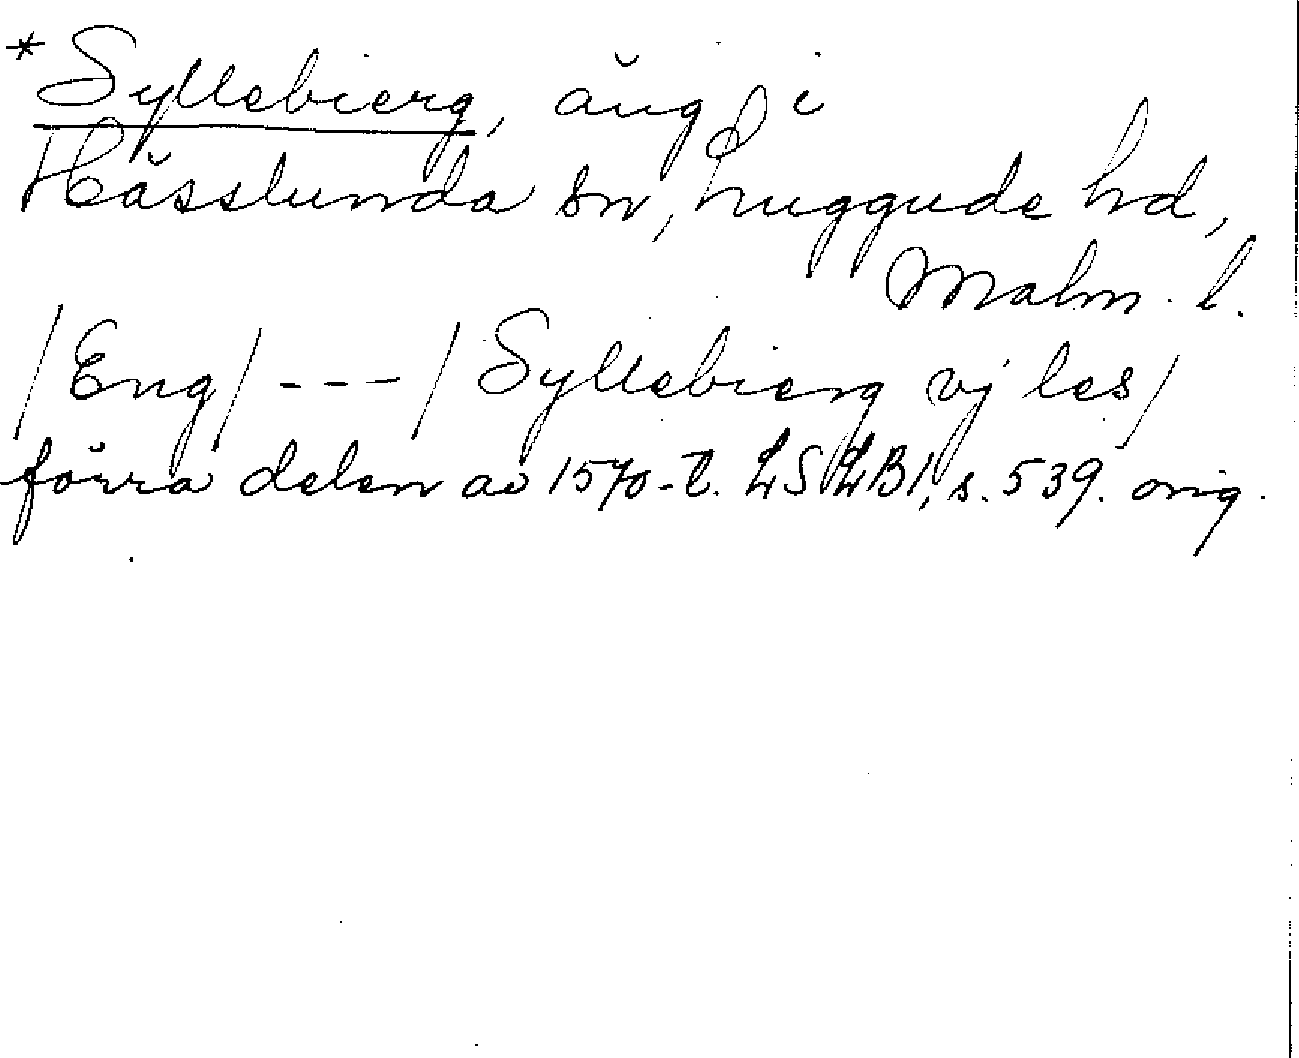 * Syllebierg, äng i
Hässlunda sn, Luggude hd,
Malm. l.
/Eng/ --- / Syllebierg vj les/
förra delen av 1570-t. LSLB1, s. 539. orig.